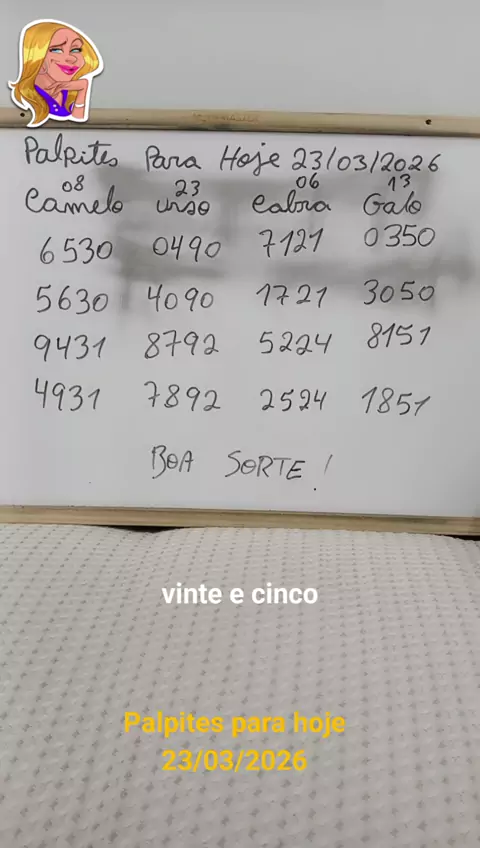 Palpites Para Hoje 23/03/2026
08 23 06 13
Camelo urso Cabra Galo
6530 0490 7121 0350
5630 4090 1721 3050
9431 8792 5224 8151
4931 7892 2524 1851
BOA SORTE!
vinte e cinco
Palpites para hoje
23/03/2026